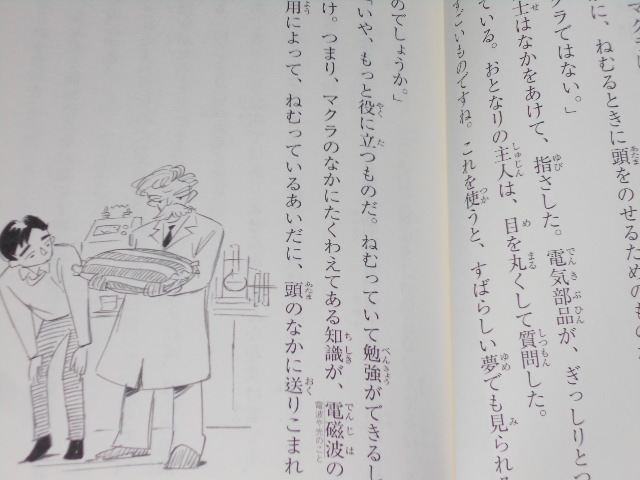 マクラに
に、ねむるときに頭をのせるためのもて
クラではない。」
士はなかをあけて、指さした。電気部品が、ぎっしりとつ
ている。おとなりの主人は、目を丸くして質問した。
すごいものですね。これを使うと、すばらしい夢でも見られる
のでしょうか。」
「いや、もっと役に立つものだ。ねむっていて勉強ができるし
け。つまり、マクラのなかにたくわえてある知識が、電磁波の
電波や光のこと
用によって、ねむっているあいだに、頭のなかに送りこまれ